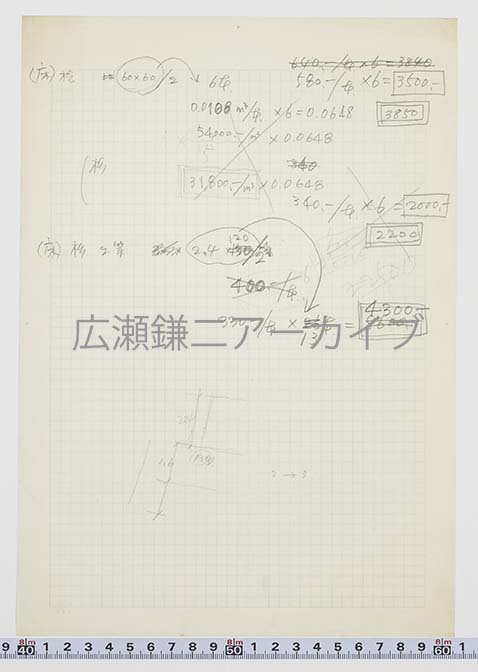 640.-/本 ×6=3840
(床) 桧 (60×60)/2 6本 580.-/本 ×6=3500.-
0.0108 m³/本 ×6=0.0648 3850
54,000.-/m³ × 0.0648
340
杉 31,800.-/m³ × 0.0648
340.-/本 ×6=2000.-
2200
(床) 杉 2等 2.4 120
400.-/本
330.-/本 × = 4300.-
13
広瀬鎌二アーカイブ
1.6
2 → 3
9 8|m 40 1 2 3 4 5 6 7 8 9 8|m 50 1 2 3 4 5 6 7 8 9 8|m 60 1